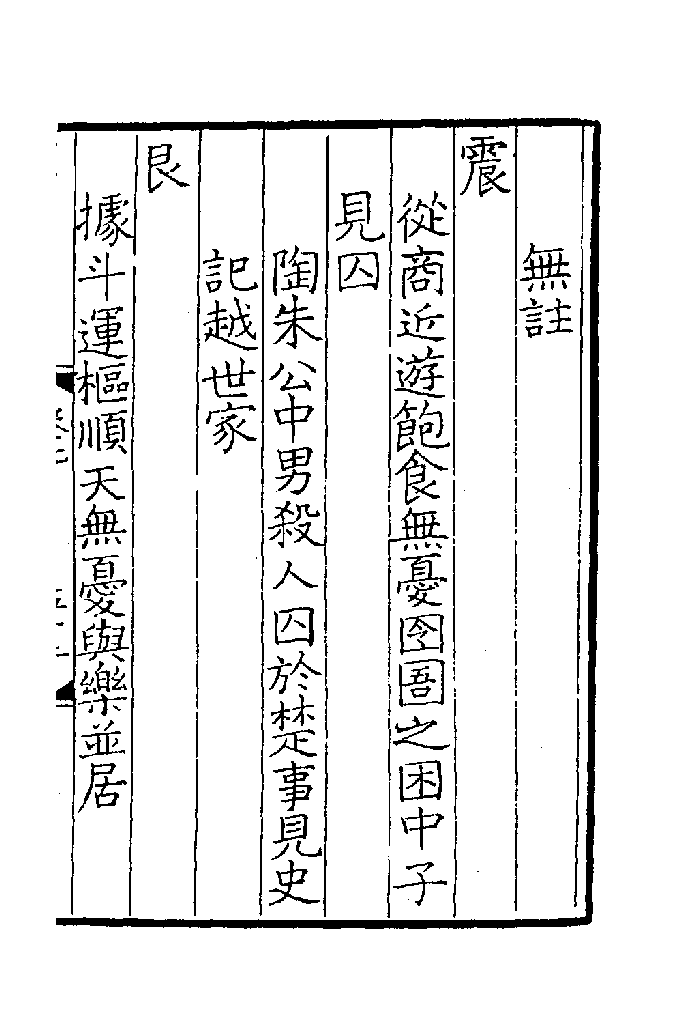 無註
震
從商近遊飽食無憂囹圄之困中子
見囚
陶朱公中男殺人囚於楚事見史
記越世家
艮
據斗運樞順天無憂與樂並居